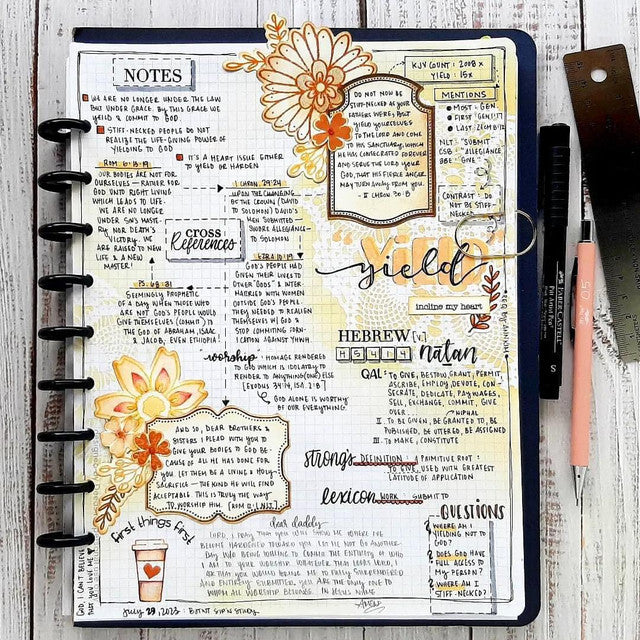 NOTES
WE ARE NO LONGER UNDER THE LAW
BUT UNDER GRACE. BY THIS GRACE WE
YEILD & COMMIT TO GOD.
STIFF-NECKED PEOPLE DO NOT
REALIZE THE LIFE-GIVING POWER OF
YIELDING TO GOD
IT'S A HEART ISSUE EITHER
TO YIELD OR HARDEN
KJV COUNT: 2008 x
YIELD: 15x
MENTIONS
MOST: GEN
FIRST: GEN 1:17
LAST: 
NLT "SUBMIT
CSB "ALLEGIANCE
BBE "GIVE"
DO NOT NOW BE
STIFF-NECKED AS YOUR
FATHERS WERE, BUT
YIELD YOURSELVES
TO THE LORD AND COME
TO HIS SANCTUARY, WHICH
HE HAS CONSECRATED FOREVER
AND SERVE THE LORD YOUR
GOD, THAT HIS FIERCE ANGER
MAY TURN AWAY FROM YOU.
- II CHRON 30:8
CONTRAST: DO
NOT BE STIFF-
NECKED
ROM 6:13-19
OUR BODIES ARE NOT FOR
OURSELVES - RATHER FOR
GOD UNTO RIGHT LIVING
WHICH LEADS TO LIFE.
WE ARE NO LONGER
UNDER SIN'S MAS-
RY NOR DEATH'S
VICTORY. WE
ARE RAISED TO NEW
LIFE & A NEW
MASTER!
I CHRON 29:24
UPON THE CHANGING
OF THE CROWN (DAVID
TO SOLOMON) DAVID'S
MEN SUBMITTED
SWORE ALLEGIANCE
TO SOLOMON
CROSS
References
PS 68:31
SEEMINGLY PROPHETIC
OF A DAY WHEN THOSE WHO
ARE NOT GOD'S PEOPLE WOULD
GIVE THEMSELVES (COMMIT) TO
THE GOD OF ABRAHAM, ISAAC,
& JACOB, EVEN ETHIOPIA!
EZRA 10:19
GOD'S PEOPLE HAD
GIVEN THEIR LIVES TO
OTHER "GODS" & INTER-
MARRIED WITH WOMEN
OUTSIDE GOD'S PEOPLE.
THEY NEEDED TO REALIGN
THEMSELVES W/ GOD &
STOP COMMITING FORNI-
CATION AGAINST YHWH
YIELD
yield
incline my heart
worship: HOMAGE RENDERED
TO GOD WHICH IS IDOLATRY TO
RENDER TO ANYTHING(ONE) ELSE
[EXODUS 34:14, ISA 2:8]
GOD ALONE IS WORTHY
OF OUR EVERYTHING.
HEBREW [v]
H5414 natan
QAL: TO GIVE, BESTOW, GRANT, PERMIT,
ASCRIBE, EMPLOY, DEVOTE, CON-
SECRATE, DEDICATE, PAY WAGES,
SELL, EXCHANGE, COMMIT, GIVE
OVER
NIPHAL
II. TO BE GIVEN, BE GRANTED TO, BE
PUBLISHED, BE UTTERED, BE ASSIGNED
III. TO MAKE, CONSTITUTE
AND SO, DEAR BROTHERS &
SISTERS I PLEAD WITH YOU TO
GIVE YOUR BODIES TO GOD BE-
CAUSE OF ALL HE HAS DONE FOR
YOU. LET THEM BE A LIVING & HOLY
SACRIFICE - THE KIND HE WILL FIND
ACCEPTABLE. THIS IS TRULY THE WAY
TO WORSHIP HIM. [ROM 12:1, NLT]
strongs DEFINITION: PRIMITIVE ROOT:
TO GIVE, USED WITH GREATEST
LATITUDE OF APPLICATION
lexicon WORK: SUBMIT TO
QUESTIONS
WHERE AM I
YIELDING NOT TO
GOD?
DOES GOD HAVE
FULL ACCESS TO
MY PERSON?
WHERE AM I
STIFF-NECKED?
first things first
dear daddy
LORD, I PRAY THAT YOU WILL SHOW ME WHERE I'VE
BECOME HARDENED TOWARD YOU. LET ME NOT GO ANOTHER
DAY W/O BEING WILLING TO COMMIT THE ENTIRETY OF WHO
I AM TO YOUR WORSHIP. WHATEVER THAT LOOKS LIKE, I
ASK THAT YOU WOULD BRING ME TO FULLY SURRENDERED
AND ENTIRELY SUBMITTED. YOU ARE THE ONLY ONE TO
WHOM ALL WORSHIP BELONGS. IN JESUS NAME
AMEN
GOD, I CAN'T BELIEVE
THAT YOU LOVE ME
July 29, 2023: BOTNT SIP N STUDY
FABER-CASTELL
S
0.5